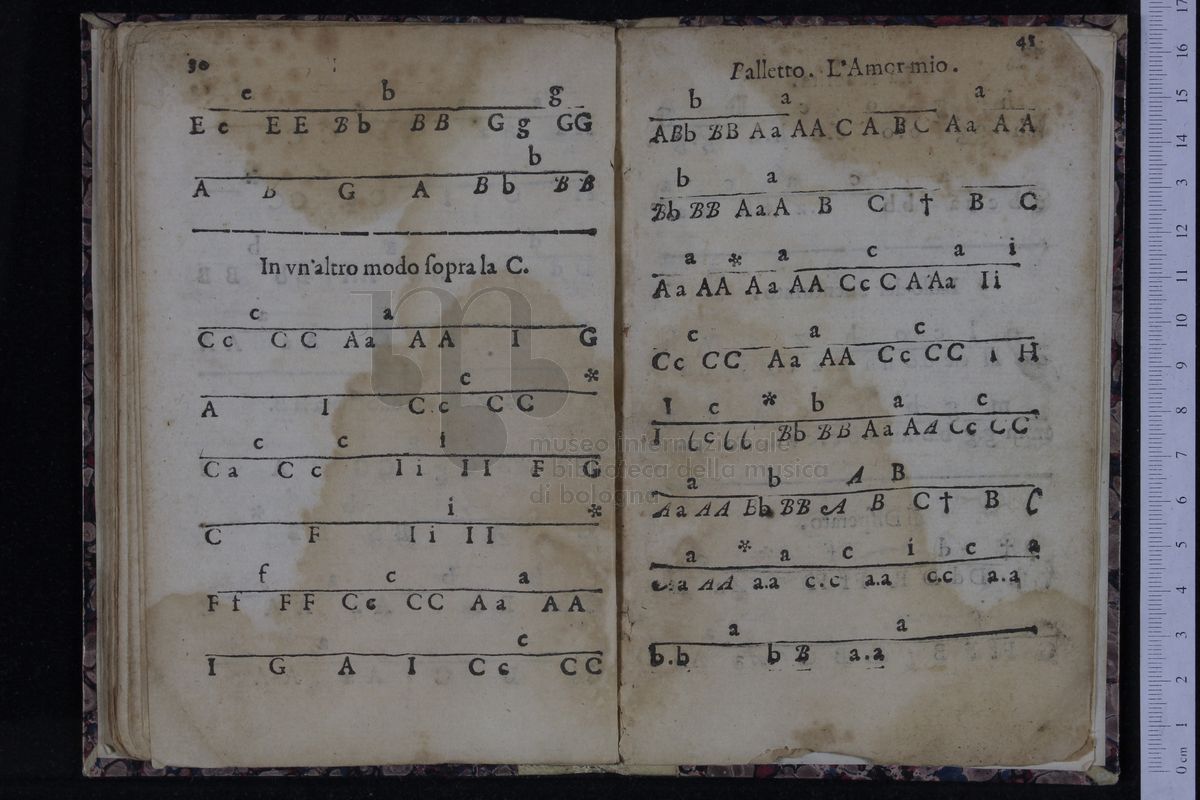 30
e b g
E e E E B b B B G g G G
b
A B G A B b B B
In vn'altro modo ſopra la C.
c a
C c C C A a A A I G
c *
A I C c C C
c c i
C a C c I i I I F G
i *
C F I i I I
f c a
F f F F C c C C A a A A
c
I G A I C c C C
Balletto. L'Amor mio.
b a a
ABb BB Aa AA C A B C Aa A A
b a
Bb BB Aa A B C † B C
a * a c a i
Aa AA Aa AA Cc C A Aa Ii
c a c
Cc CC Aa AA Cc CC I H
I c * b a c
I Cc CC Bb BB Aa AA Cc CC
a b A B
Aa AA Bb BB A B C † B C
a * a c i c a
AA a.a c.c a.a c.c a.a
a a
b.b b B a.a
museo internazionale
e biblioteca della musica
di bologna
0 cm 1 2 3 4 5 6 7 8 9 10 11 12 13 14 15 16 17